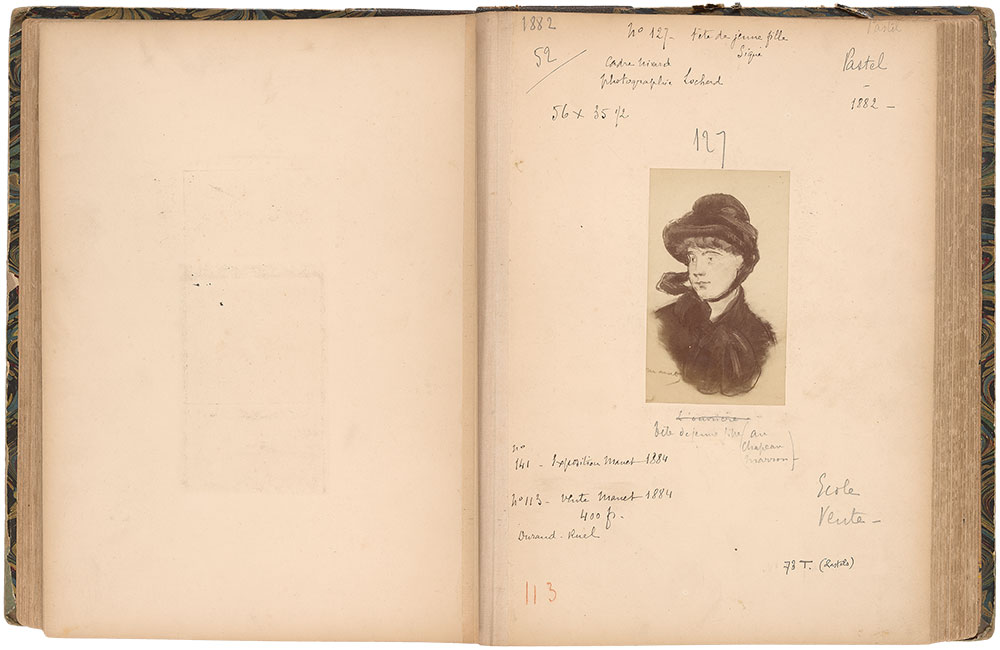 1882
Nº 127 - Tête de jeune fille
Signé
Pastel
52
Cadre Nivard
photographie Lochard
Pastel
-
1882 -
56 x 35 1/2
127
L'ouvrière
Tête de jeune fille (au
chapeau
marron)
nº
141 - Exposition Manet 1884
Nº 113 - Vente Manet 1884
400 fr.
Durand-Ruel
Ecole
Vente -
78 T. (Pastels)
113